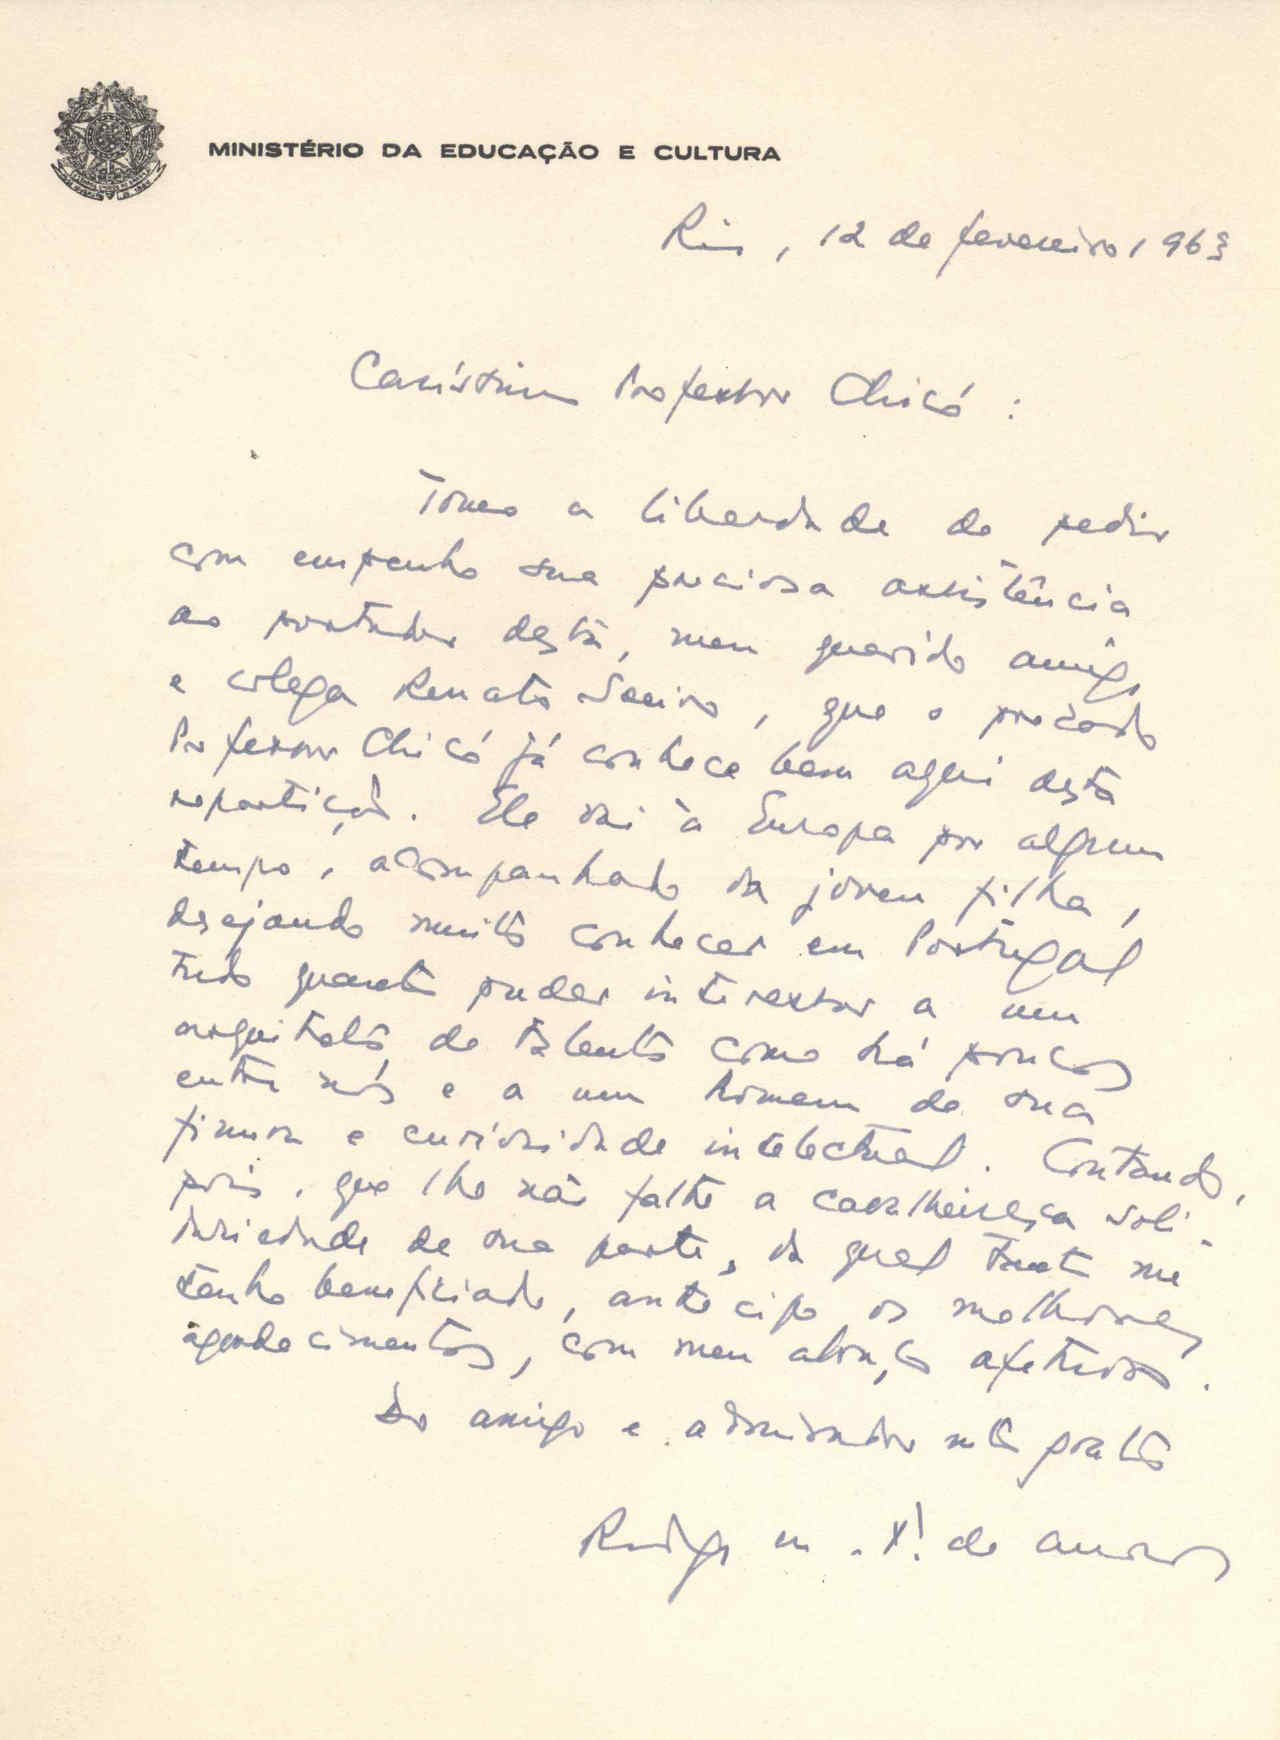 MINISTÉRIO DA EDUCAÇÃO E CULTURA
Rio, 12 de fevereiro 1963
Caríssimo Professor Chicó:
Tomo a liberdade de pedir
com empenho sua preciosa assistência
ao portador desta, meu querido amigo
e colega Renato Soeiro, que o prezado
Professor Chicó já conhece bem aqui desta
repartição. Ele vai à Europa por algum
tempo, acompanhado da jovem filha,
desejando muito conhecer em Portugal
tudo quanto puder interessar a um
arquiteto de talento como há poucos
entre nós e a um homem de sua
finura e curiosidade intelectual. Contando,
pois, que lhe não falte a cavalheiresca soli-
dariedade de sua parte, da qual tanto me
tenho beneficiado, antecipo os melhores
agradecimentos, com meu abraço afetuoso.
Do amigo e admirador mto grato
Rodrigo M. F. de Andrade